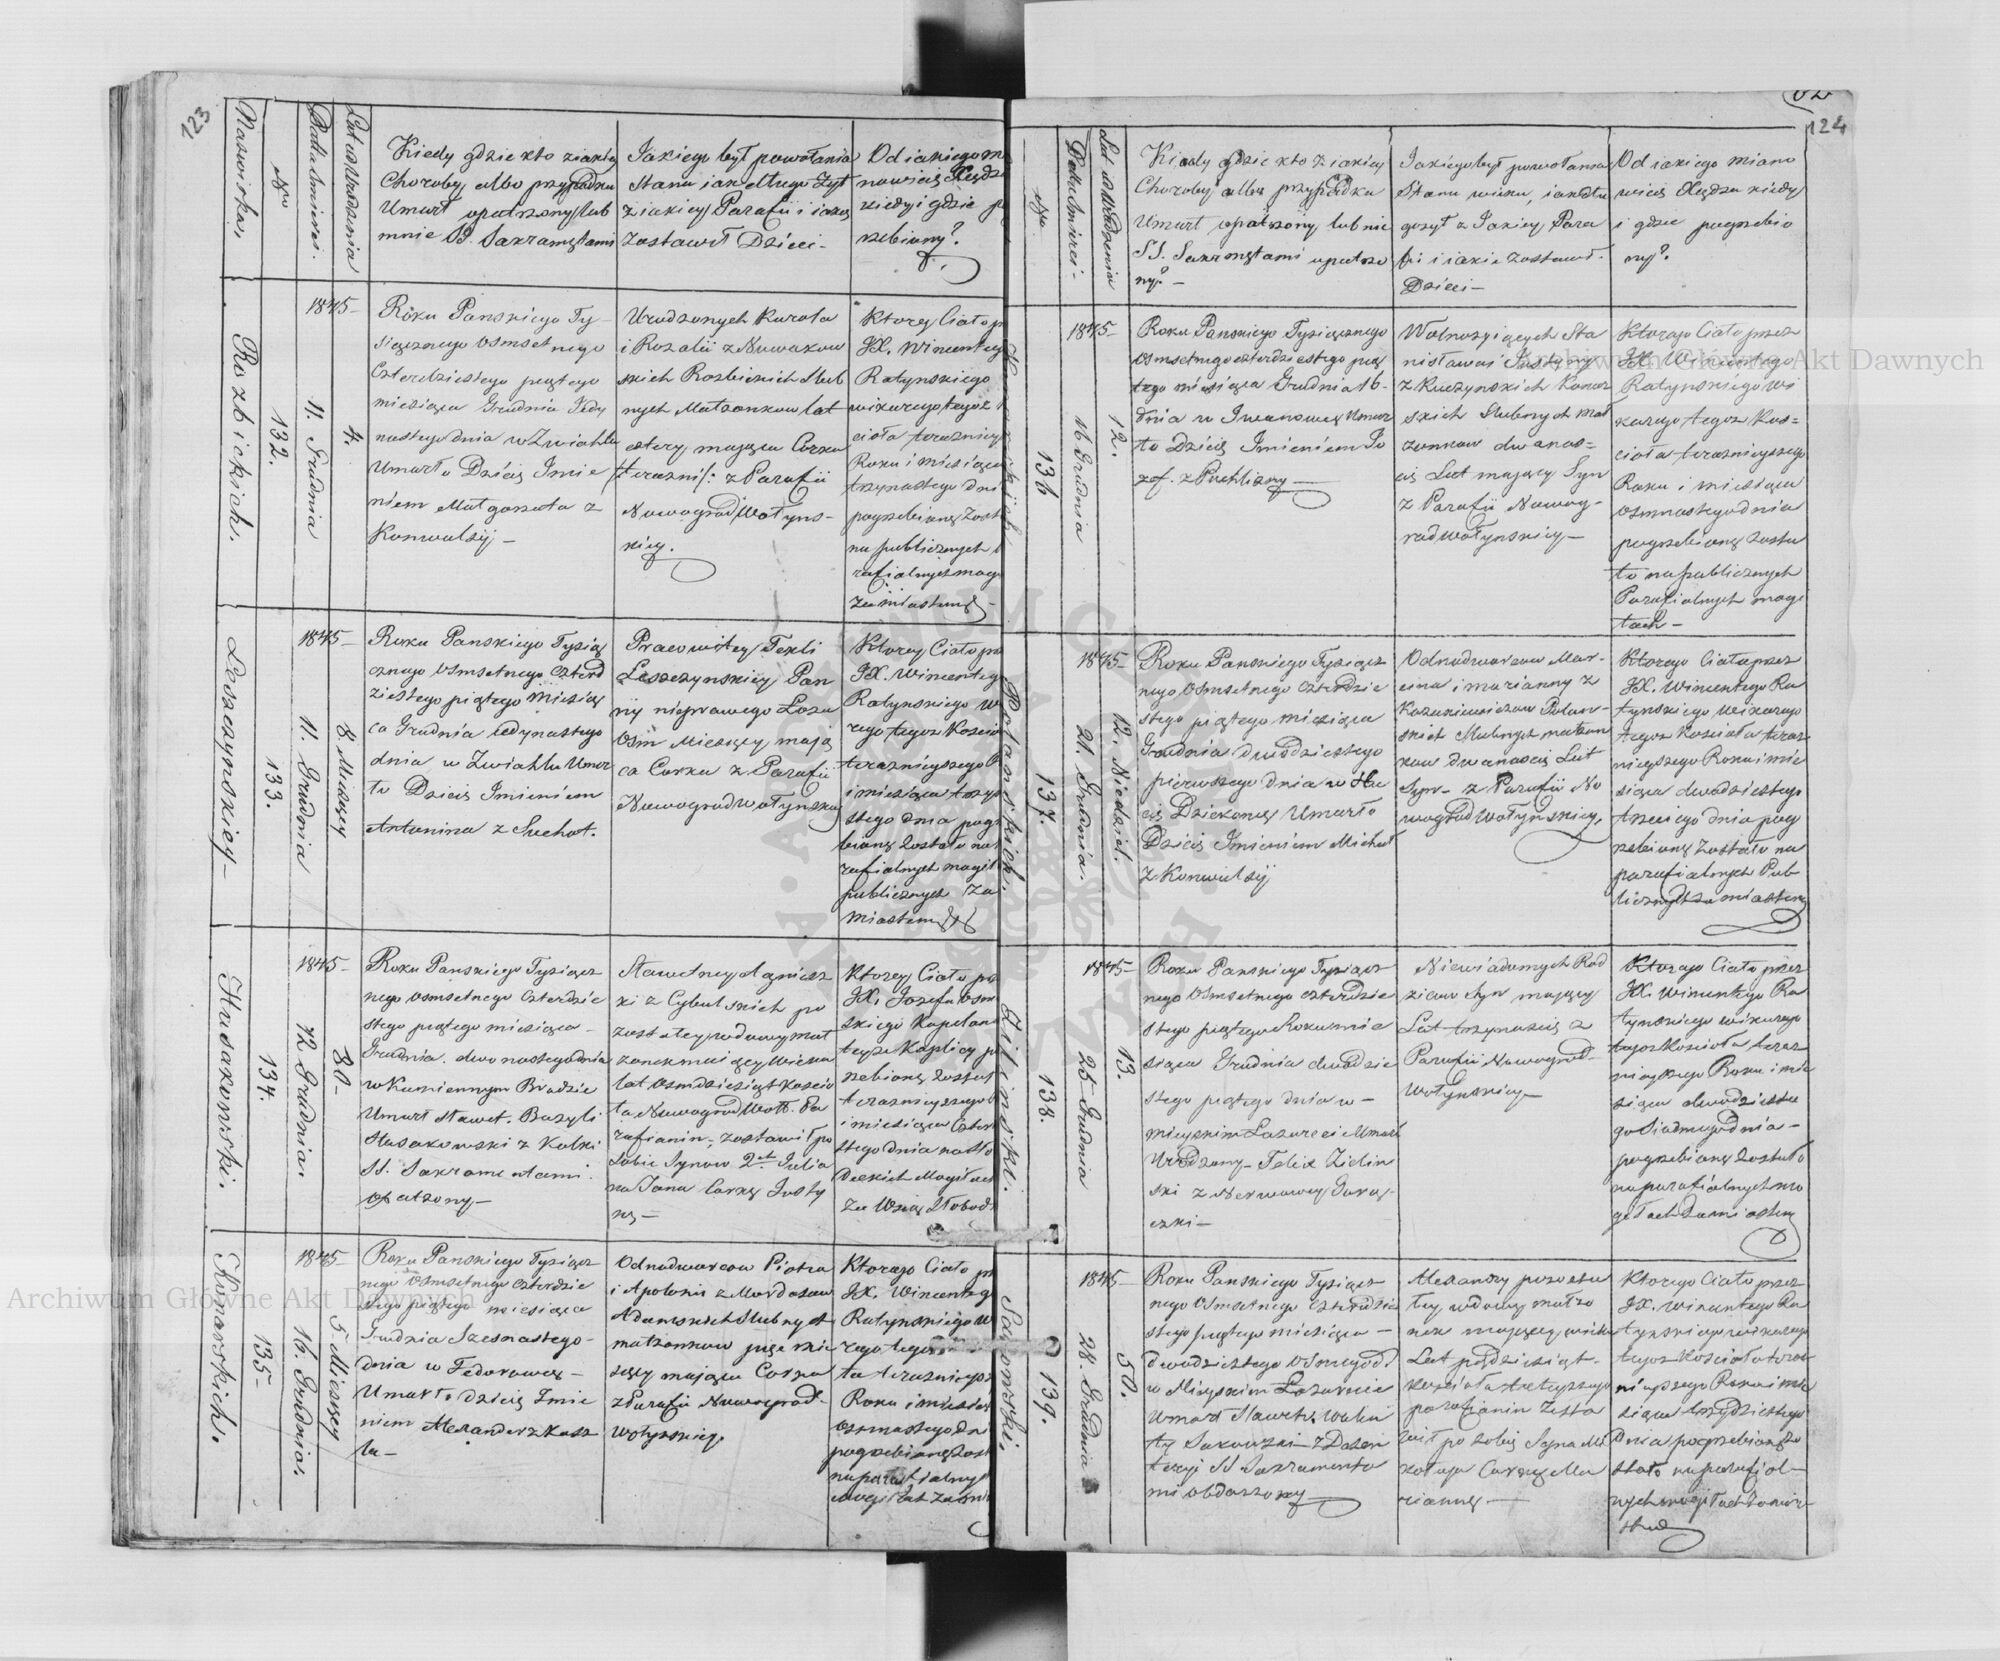 123
Nazwiska.
Nro
Data Smierci.
Lat w Urodzenia
Kiedy gdzie kto z iakiey
Choroby albo przypadku
Umarł opatrzony lub
nnie SS. Sakramętami
Jakiego był powołania
Stanu iak długo żył
z iakiey Parafii i iakie
zostawił Dzieci -
Od iakiego m
nowicie Xiędza
kiedy i gdzie p
rzebiony?
Rozbickich.
132.
1845-
11. Grudnia
4.
Roku Panskiego Ty-
siącznego Osmsetnego
Czterdziestego piątego
miesiąca Grudnia Jedy
nastego dnia w Zwiahlu
Umarło Dziecię Imie
niem Małgorzata z
Konwulsij -
Urodzonych Karola
i Rozalii z Nowakow
skich Rozbickich Slub
nych Matzonkow lat
cztery mająca Corka
z Parafii
Nowogrod Wołyns-
kiey.
Ktorey Ciało p
JX. Wincenteg
Ratynskiego
wikarego tegoż k
cioła teraznieys
Roku i miesiąca
trzynastego dni
pogrzebione Zost
na publicznych
rafialnych mog
za miastem -
Leszczynskiey -
133.
1845-
11. Grudnia
8 Miesięcy
Roku Panskiego Tysiąc
cznego Osmsetnego Czterd
ziestego piątego Miesią
ca Grudnia Jedynastego
dnia w Zwiahlu Umar
ło Dziecię Imieniem
Antonina z Suchot.
Pracowitey Tekli
Leszczynskiey Pan
ny nieprawego Łoza
Osm Miesięcy mają
ca Corka z Parafii
Nowogrodwołynskiey
Ktorey Ciało prz
JX. Wincenteg
Ratynskiego w
rego tegoż Koscio
teraznieyszego R
i miesiąca trzyn
stego dnia pog
bione Zostało na
rafialnych mogił
publicznych za
miastem
Husakowski.
134.
1845-
12 Grudnia.
80-
Roku Panskiego Tysiącz
nego Osmsetnego Czterdzie
stego piątego miesiąca -
Grudnia. dwonastego dnia
w Kamiennym Brodzie
Umarł Sławet. Bazyli
Husakowski z Kolki
SS. Sakramentami.
Opatrzony -
Sławetney Agniesz
ki z Cybulskich po
zostałey wdowy mał
żonek maiący Wieku
lat Osmdziesiąt Koscio
ła Nowogrod Woł. Pa
rafianin, zostawił po
sobie Synow 2ch Julia
na Jana Corkę Justy
nę -
Ktorey Ciało prz
JX. Jozefa Osm
skiego Kapelan
teyże Kaplicy po
rzebione Zostało
teraznieyszego R
i miesiąca Czter
stego dnia na Sło
deckich Mogiłach
Za Wsią Słobod
Skomarskich.
135-
1845
16. Grudnia.
5- Miesięcy
Roku Panskiego Tysiącz
nego Osmsetnego Czterdzie
stego piątego miesiąca
Grudnia Szesnastego -
dnia w Fedorowce -
Umarło dziecię Imie
niem Alexander z Kasz
lu -
Odnodworcow Piotra
i Apolonii z Mordasow
Adamskich Slubnych
matzonkow pięć mie
sięcy mająca Corka
z Parafii Nowogrod-
wołynskiey.
Ktorego Ciało p
JX. Wincenteg
Ratynskiego w
rego tegoż
ła teraznieysz
Roku i miesiąc
Osmnastego dn
pogrzebione Zost
na parafialnych
mogiłach za mi
124
Nro
Data Smierci -
Lat w Urodzenia
Kiedy gdzie kto z iakiey
Choroby albo przypadku
Umarł opatrzony lub nie
SS. Sakramętami opatrzo
ny? -
Jakiego był powołania
Stanu wieku, iak dłu
go żył z Jakiey Para
fii i iakie zostawił -
Dzieci -
Od iakiego miano
wicie Xiędza kiedy
i gdzie pogrzebio
ny?
136
1845-
16 Grudnia
12.
Roku Panskiego Tysiącznego
Osmsetnego czterdziestego pią
tego miesiąca Grudnia 16-
dnia w Iwanowce Umar
ło Dziecię Imieniem Jo
zef. z Puchliny
Wolnożyiących Sta
nisława i Justyny
z Kuczynskich
skich Slubnych Mał
żonkow dwanaś-
cie Lat maiący Syn
z Parafii Nowog-
rodwołynskiey -
Ktorego Ciało przez
JX. Wincentego
Ratynskiego wi
karego tegoż Koś-
cioła teraznieyszego
Roku i miesiąca
Osmnastego dnia
pogrzebione Zosta
ło na publicznych
Parafialnych mogi
łach -
Polanskich.
137.
1845-
21. Grudnia.
12. Niedziel.
Roku Panskiego Tysiącz
nego Osmsetnego Czterdzie
stego piątego miesiąca
Grudnia dwodziestego
pierwszego dnia w Hu
cie Dziekoney Umarło
Dziecię Imieniem Michał
z Konwulsij
Odnodworcow Mar-
cina i Marianny z
Kazakiewiczow Polan-
skich Slubnych matzon
kow dwanascie Lat
Syn- z Parafii No
wogrodWołynskiey.
Ktorego Ciało przez
JX. Wincentego Ra
tynskiego Wikarego
tegoż Kościoła teraz
nieyszego Roku i mie
siąca dwodziestego
trzeciego dnia pog
rzebione Zostało na
parafialnych Pub
licznych za miastem
Zilinski.
138.
1845-
25 Grudnia
13.
Roku Panskiego Tysiącz
nego Osmsetnego Czterdzie
stego piątego Roku mie
siąca Grudnia dwodzie
stego piątego dnia w -
mieyskim Lazarecie Umarł
Urodzony - Felix Zielin
ski z Nerwowey Gorą-
czki -
Niewiadomych Rod
zicow Syn maiący
Lat trzynaście z
Parafii Nowogrod-
Wołynskiey
Ktorego Ciało przez
JX. Wincentego Ra
tynskiego wikarego
tegoż Kościoła teraz
nieyszego Roku i mie
siąca dwodzieste
go Siodmego dnia -
pogrzebione Zostało
na parafialnych mo
giłach Za miastem
Sakowski.
139.
1845-
28. Grudnia
50.
Roku Panskiego Tysiącz
nego Osmsetnego Czterdzie
stego piątego miesiąca -
dwodziestego Osmego d.
w Mieyskim Lazarecie
Umarł Sławetny Walen
ty Sakowski - z Dezen
teryi SS Sakramenta
mi obdarzony
Alexandry pozosta
łey wdowy małżo
nek maiący wieku
Lat pięćdziesiąt -
kościoła tutejszego
parafianin Zosta
wił po sobie Syna Mi
kołaja Corkę Ma
riannę -
Ktorego Ciało przez
JX. Wincentego Ra
tynskiego wikarego
tegoż Kościoła teraz
nieyszego Roku i mie
siąca trzydziestego
Dnia pogrzebione Zo
stało na parafial-
nych mogiłach Za mia
stem
Archiwum Główne Akt Dawnych
Archiwum Główne Akt Dawnych